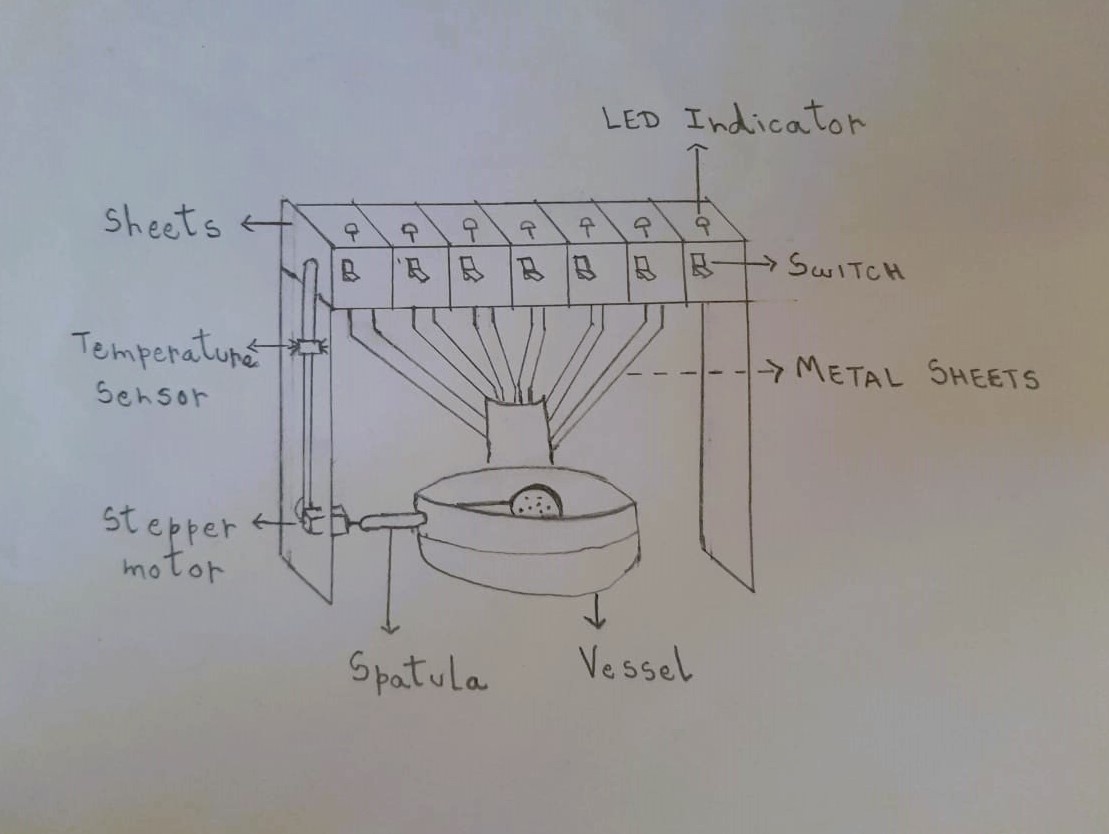 LED Indicator
Sheets
SWITCH
Temperature
Sensor
METAL SHEETS
Stepper
motor
Spatula
Vessel